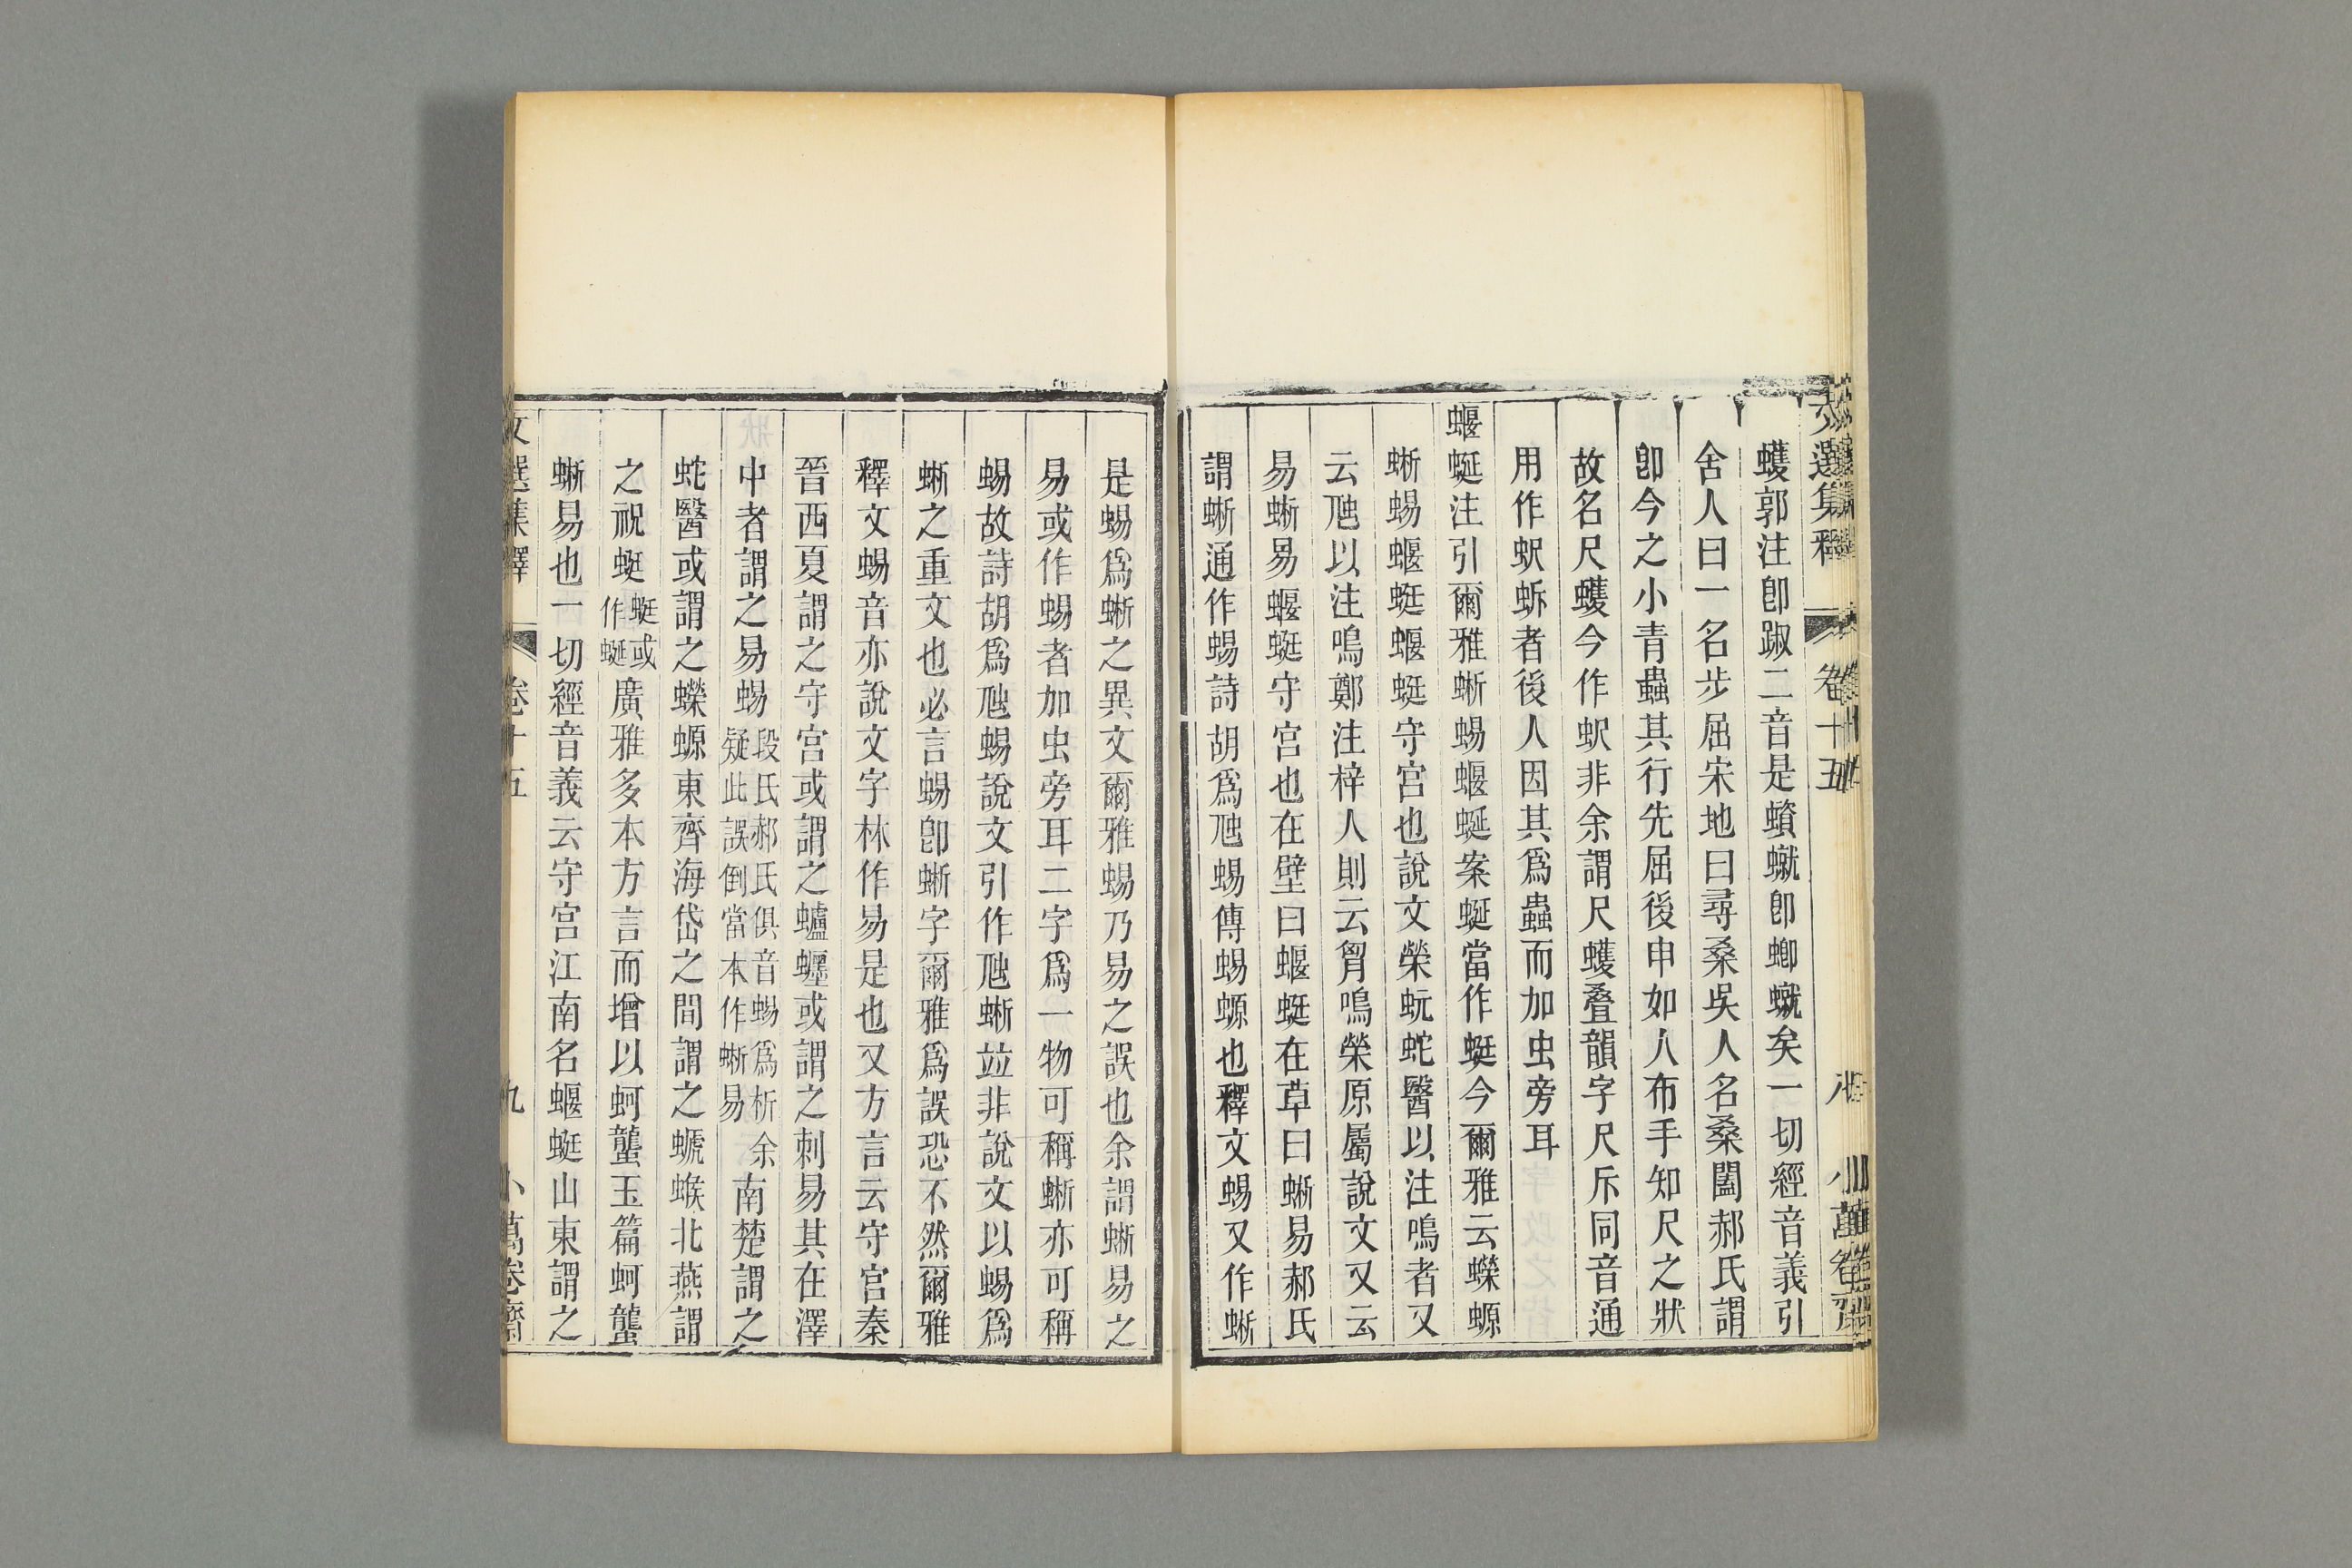 蠖郭注卽踧二音是蠀𧑙卽蝍𧑙矣一切經音義引
舍人曰一名步屈宋地曰尋桑吳人名桑闔郝氏謂
卽今之小青蟲其行先屈後申如人布手知尺之狀
故名尺蠖今作蚇非余謂尺蠖叠韻字尺斥同音通
用作蚇蚸者後人因其爲蟲而加虫旁耳
蝘蜒注引爾雅蜥蜴蝘蜒案蜒當作蜓今爾雅云蠑螈
蜥蜴蝘蜓蝘蜓守宮也說文榮蚖蛇醫以注鳴者又
云虺以注鳴鄭注梓人則云胷鳴榮原屬說文又云
易蜥易蝘蜓守宮也在壁曰蝘蜓在草曰蜥易郝氏
謂蜥通作蜴詩胡爲虺蜴傳蜴螈也釋文蜴又作蜥
是蜴爲蜥之異文爾雅蜴乃易之誤也余謂蜥易之
易或作蜴者加虫旁耳二字爲一物可稱蜥亦可稱
蜴故詩胡爲虺蜴說文引作虺蜥竝非說文以蜴爲
蜥之重文也必言蜴卽蜥字爾雅爲誤恐不然爾雅
釋文蜴音亦說文字林作易是也又方言云守宮秦
晉西夏謂之守宮或謂之蠦𧓋或謂之刺易其在澤
中者謂之易蜴段氏郝氏俱音蜴爲析余疑此誤倒當本作蜥易南楚謂之
蛇醫或謂之蠑螈東齊海岱之間謂之螔䗔北燕謂
之祝蜓蜓或作蜒廣雅多本方言而增以蚵蠪玉篇蚵蠪
蜥易也一切經音義云守宮江南名蝘蜓山東謂之
文選集釋 卷十五 九 小萬卷齋